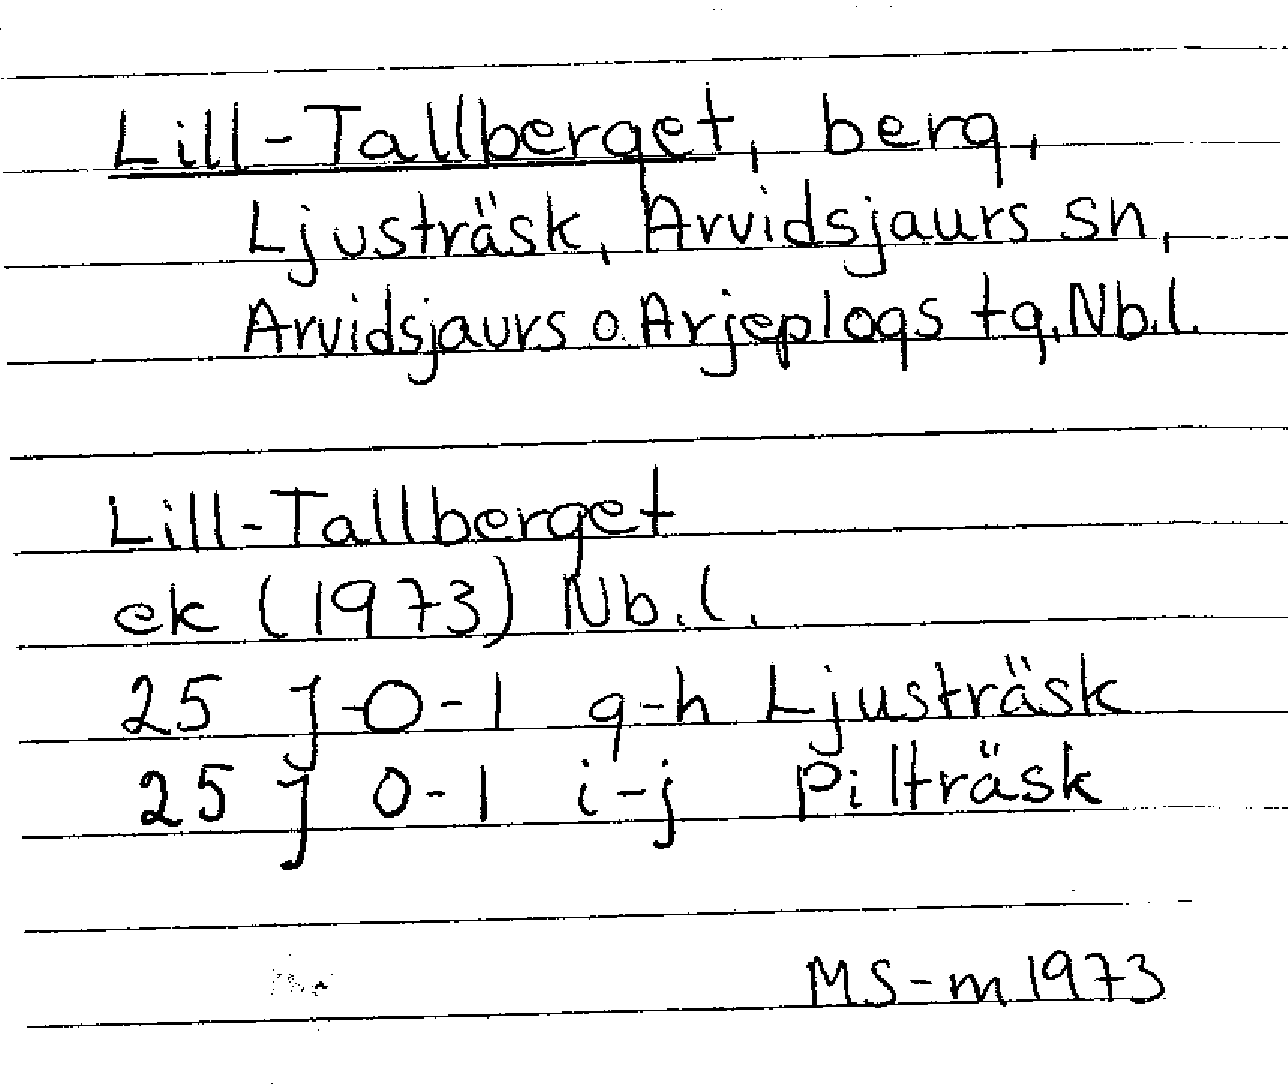 Lill-Tallberget, berg,
Ljusträsk, Arvidsjaurs sn,
Arvidsjaurs o. Arjeplogs tg, Nb.l.
Lill-Tallberget
ek (1973) Nb.l.
25 J-0-1 g-h Ljusträsk
25 J 0-1 i-j Pilträsk
MS-m 1973